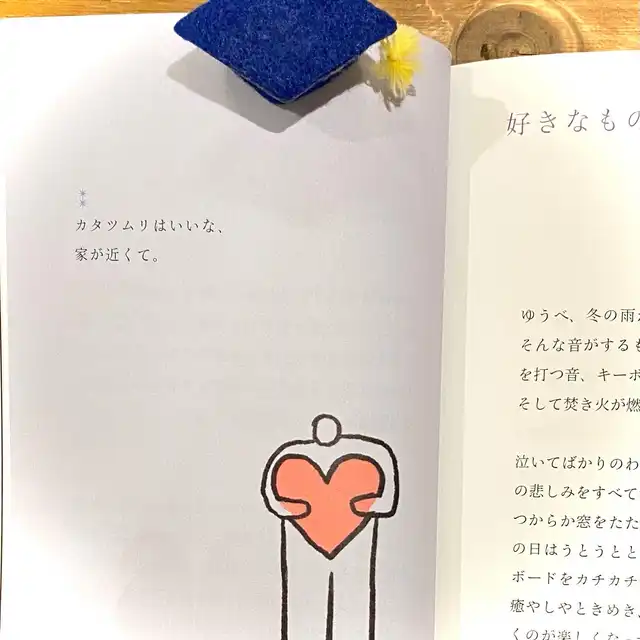 ＊＊
カタツムリはいいな、
家が近くて。
好きなもの
ゆうべ、冬の雨
そんな音がするも
を打つ音、キーボ
そして焚き火が燃
泣いてばかりのわ
の悲しみをすべて
つからか窓をたた
の日はうとうとと
ボードをカチカチ
癒やしやときめき、
くのが楽しくなっ